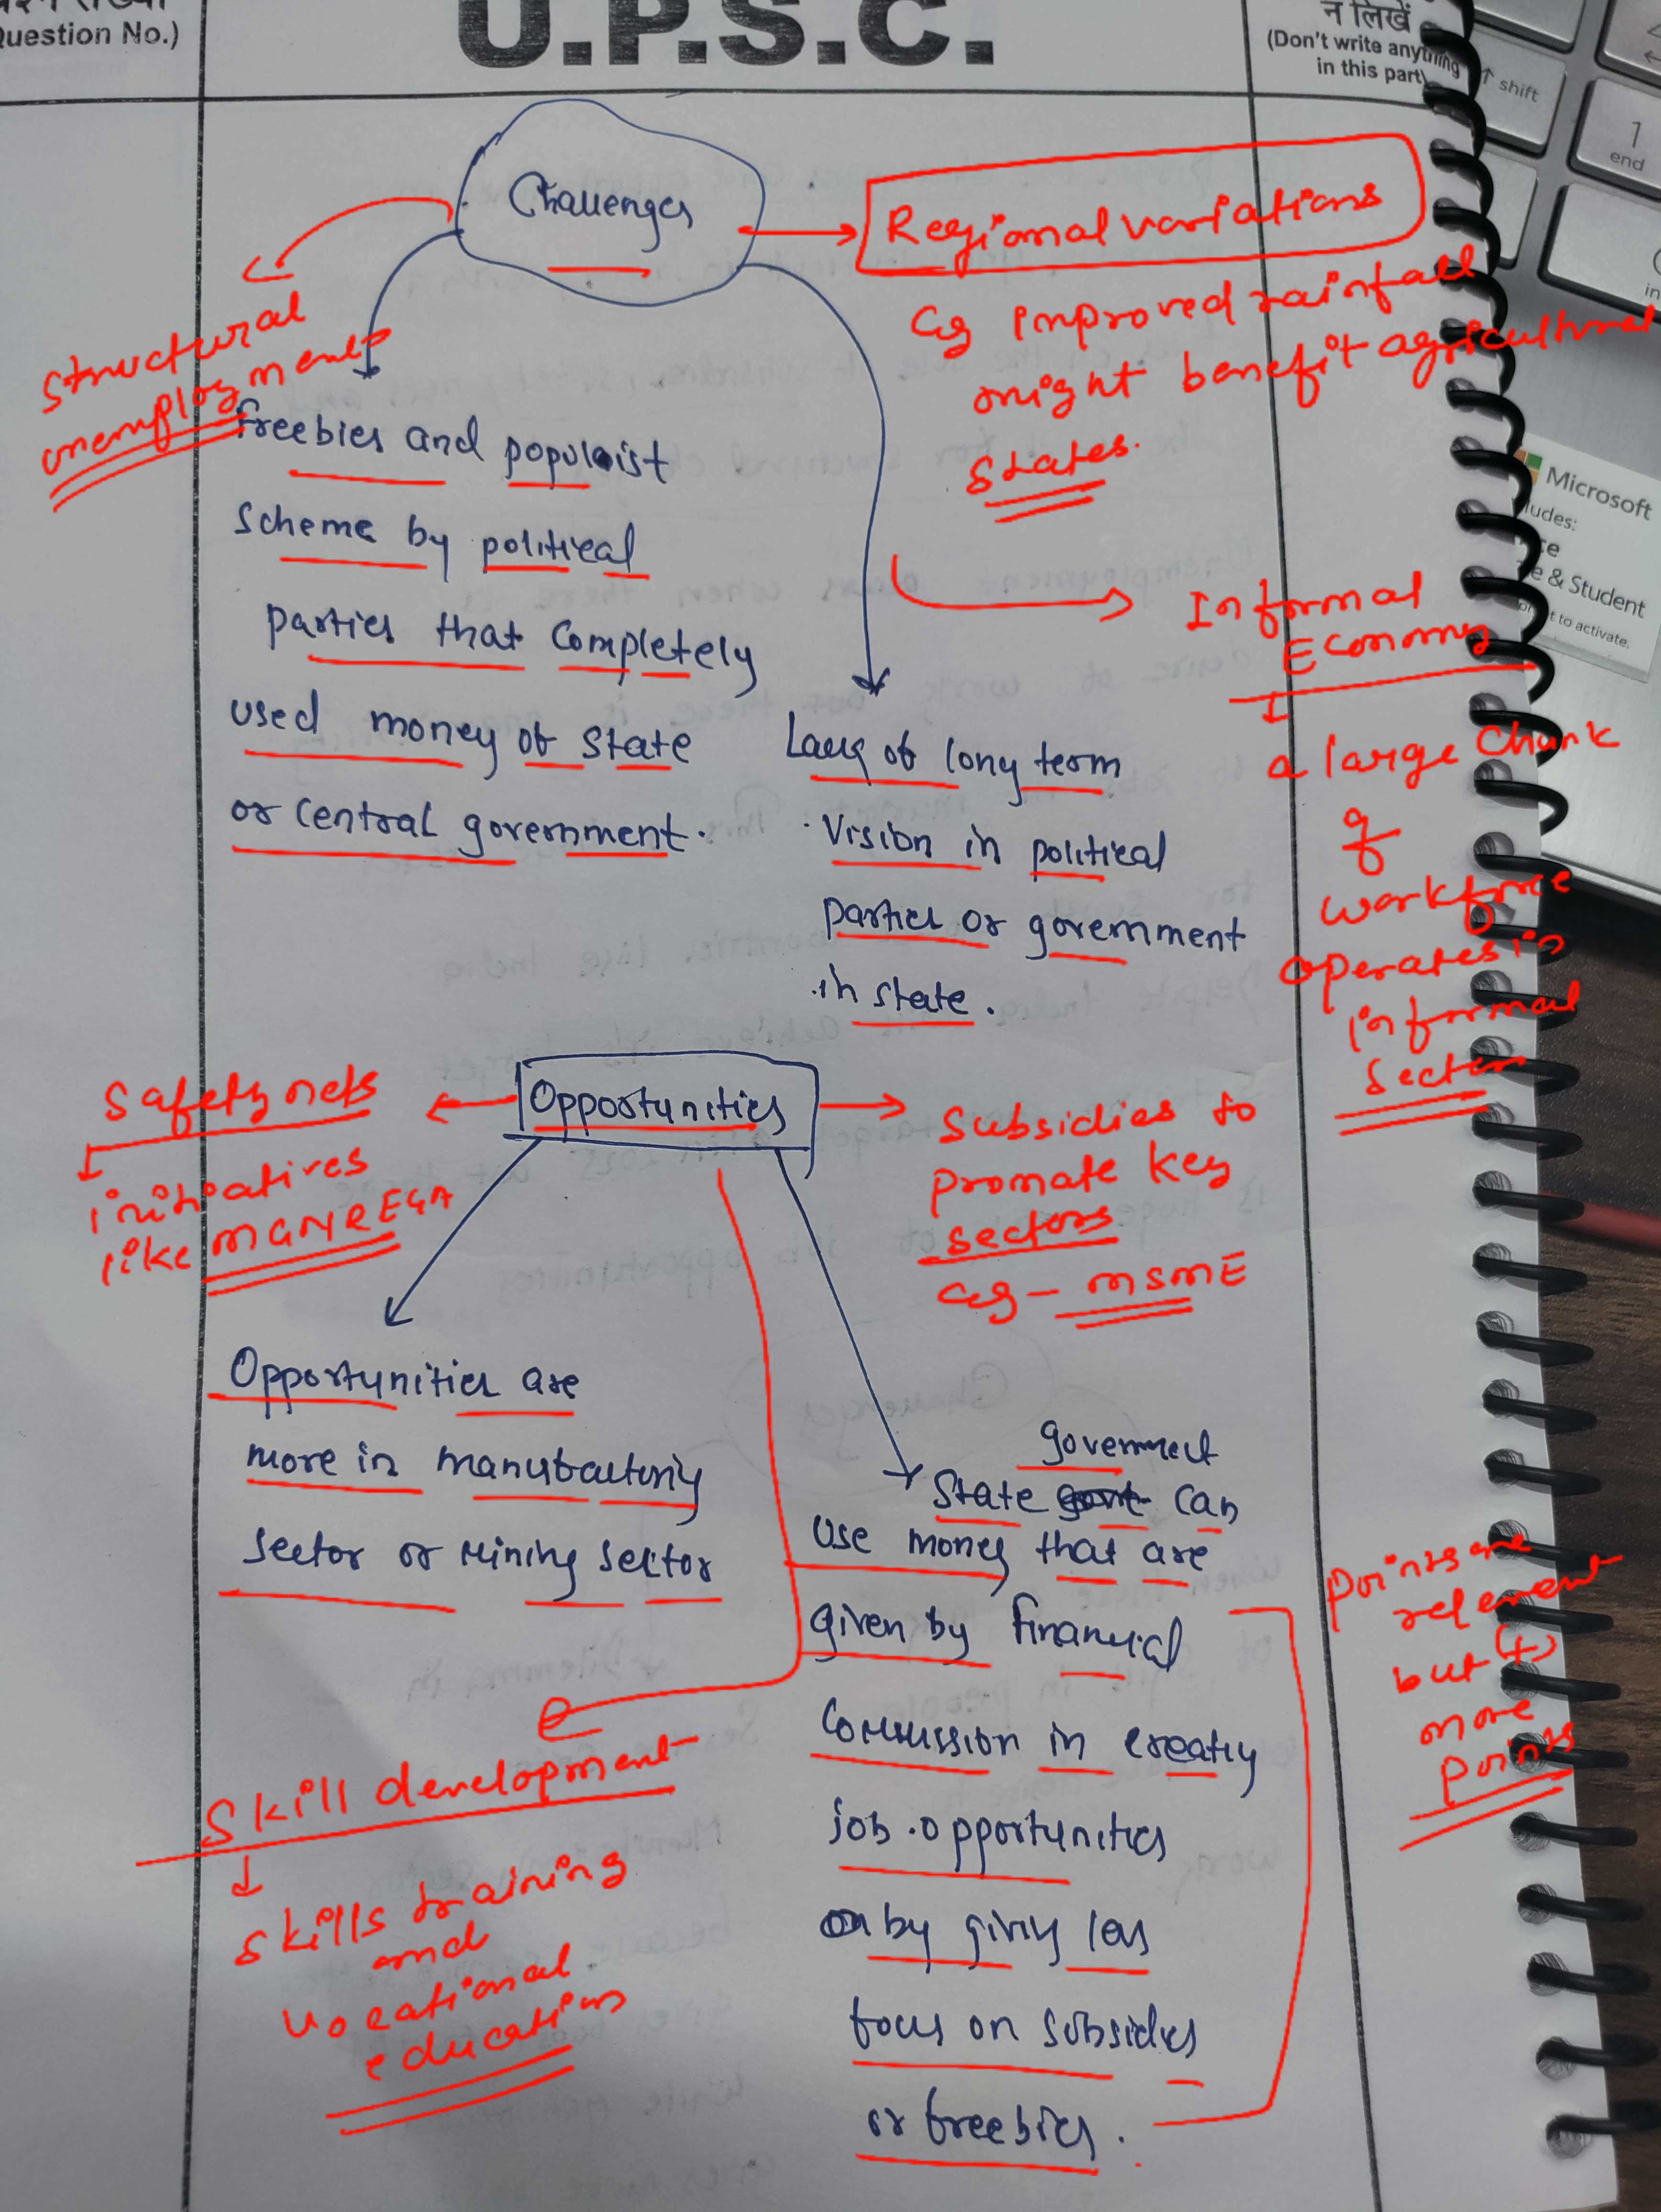 Question No.)
U.P.S.C.
न लिखें
(Don't write anything
in this part)
shift
1
end
Challenges
Regional variations
eg improved rainfall
might benefit agricultural
states.
Structural
unemployment
freebies and populist
scheme by political
parties that completely
used money of state
or central government.
Microsoft
& Student
to activate.
Informal
Economy
a large chunk
of
workforce
operates in
informal
sector
Lack of long term
Vision in political
parties or government
in state.
Opportunities
Safety nets
initiatives
like MGNREGA
Subsidies to
promote key
sectors
eg - MSME
Opportunities are
more in manufacturing
sector or Mining sector
government
State govt can
use money that are
given by financial
Commission in creating
job opportunities
by giving less
focus on subsidies
or freebies.
Points are
relevant
but (+)
more
points
Skill development
skills training
and
vocational
education